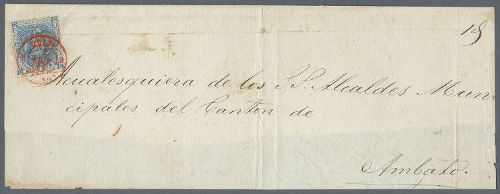 18
Acualesquiera de los S.S. Alcaldes Muni
cipales del Canton de
Ambato.